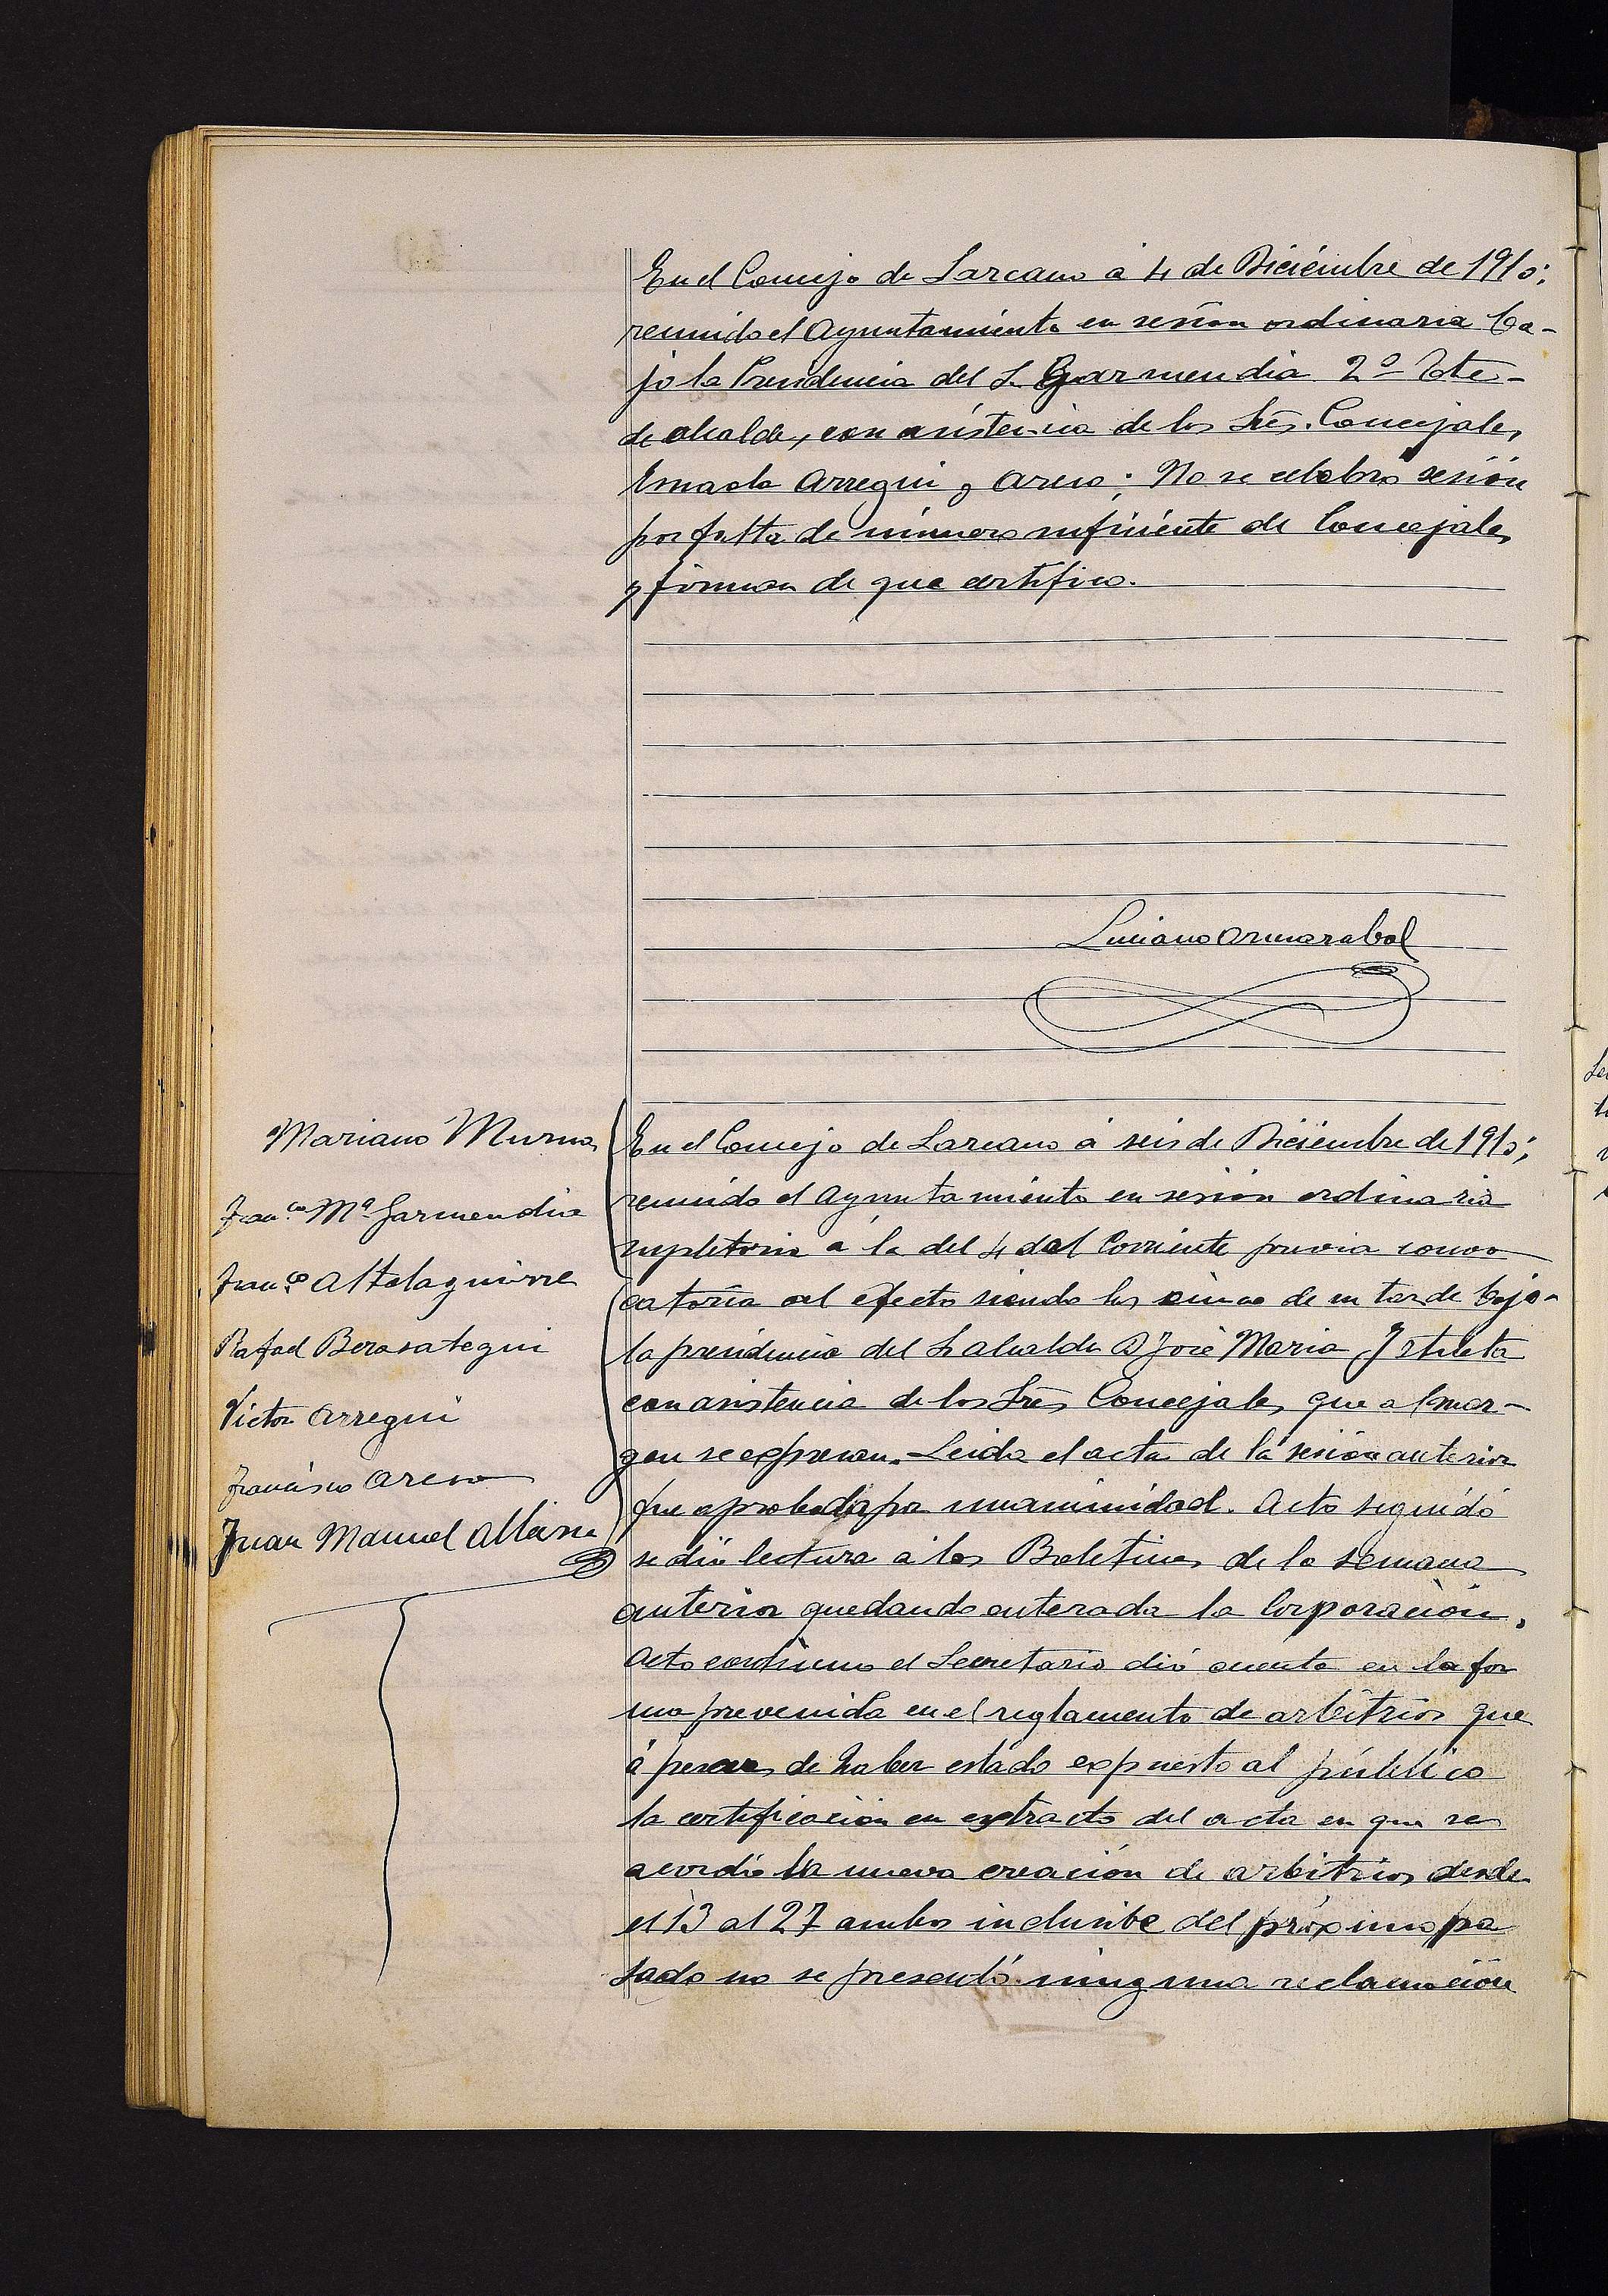 En el Concejo de Lazcano a 4 de Diciembre de 1910;
reunido el Ayuntamiento en sesion ordinaria ba-
jo la Presidencia del Sr Garmendia 2º Tte-
de alcalde, con asistencia de los Srēs. Concejales
Arregui y Areso; No se celebro sesión
por falta de número suficiente de Concejales
y firman de que certifico.
Luciano Ormazabal
Mariano Murua
Franco. Mª Garmendia
Franco. Altolaguirre
Rafael Berasategui
Victor Arregui
Francisco Areso
Juan Manuel Albisu
En el Concejo de Lazcano á seis de Diciembre de 1910;
reunido el Ayuntamiento en sesion ordinaria
supletoria a la del 4 del Corriente previa convo
catoria al efecto siendo las cinco de su tarde bajo-
la presidencia del Sr alcalde D José Maria
con asistencia de los Srēs Concejales que al mar-
gen se expresan. Leida el acta de la sesion anterior
fue aprobada por unanimidad. Acto seguido
se dió lectura a los Boletines de la semana
anterior quedando enterada la Corporación.
Acto continuo el Secretario dió cuenta en la for
ma prevenida en el reglamento de arbitrios que
á pesar de haber estado expuesto al público
la certificación en extracto del acta en que se
acordio la nueva creación de arbitrios desde
el 13 al 27 ambos inclusibe del próximo pa
sado no se presentó ninguna reclamación